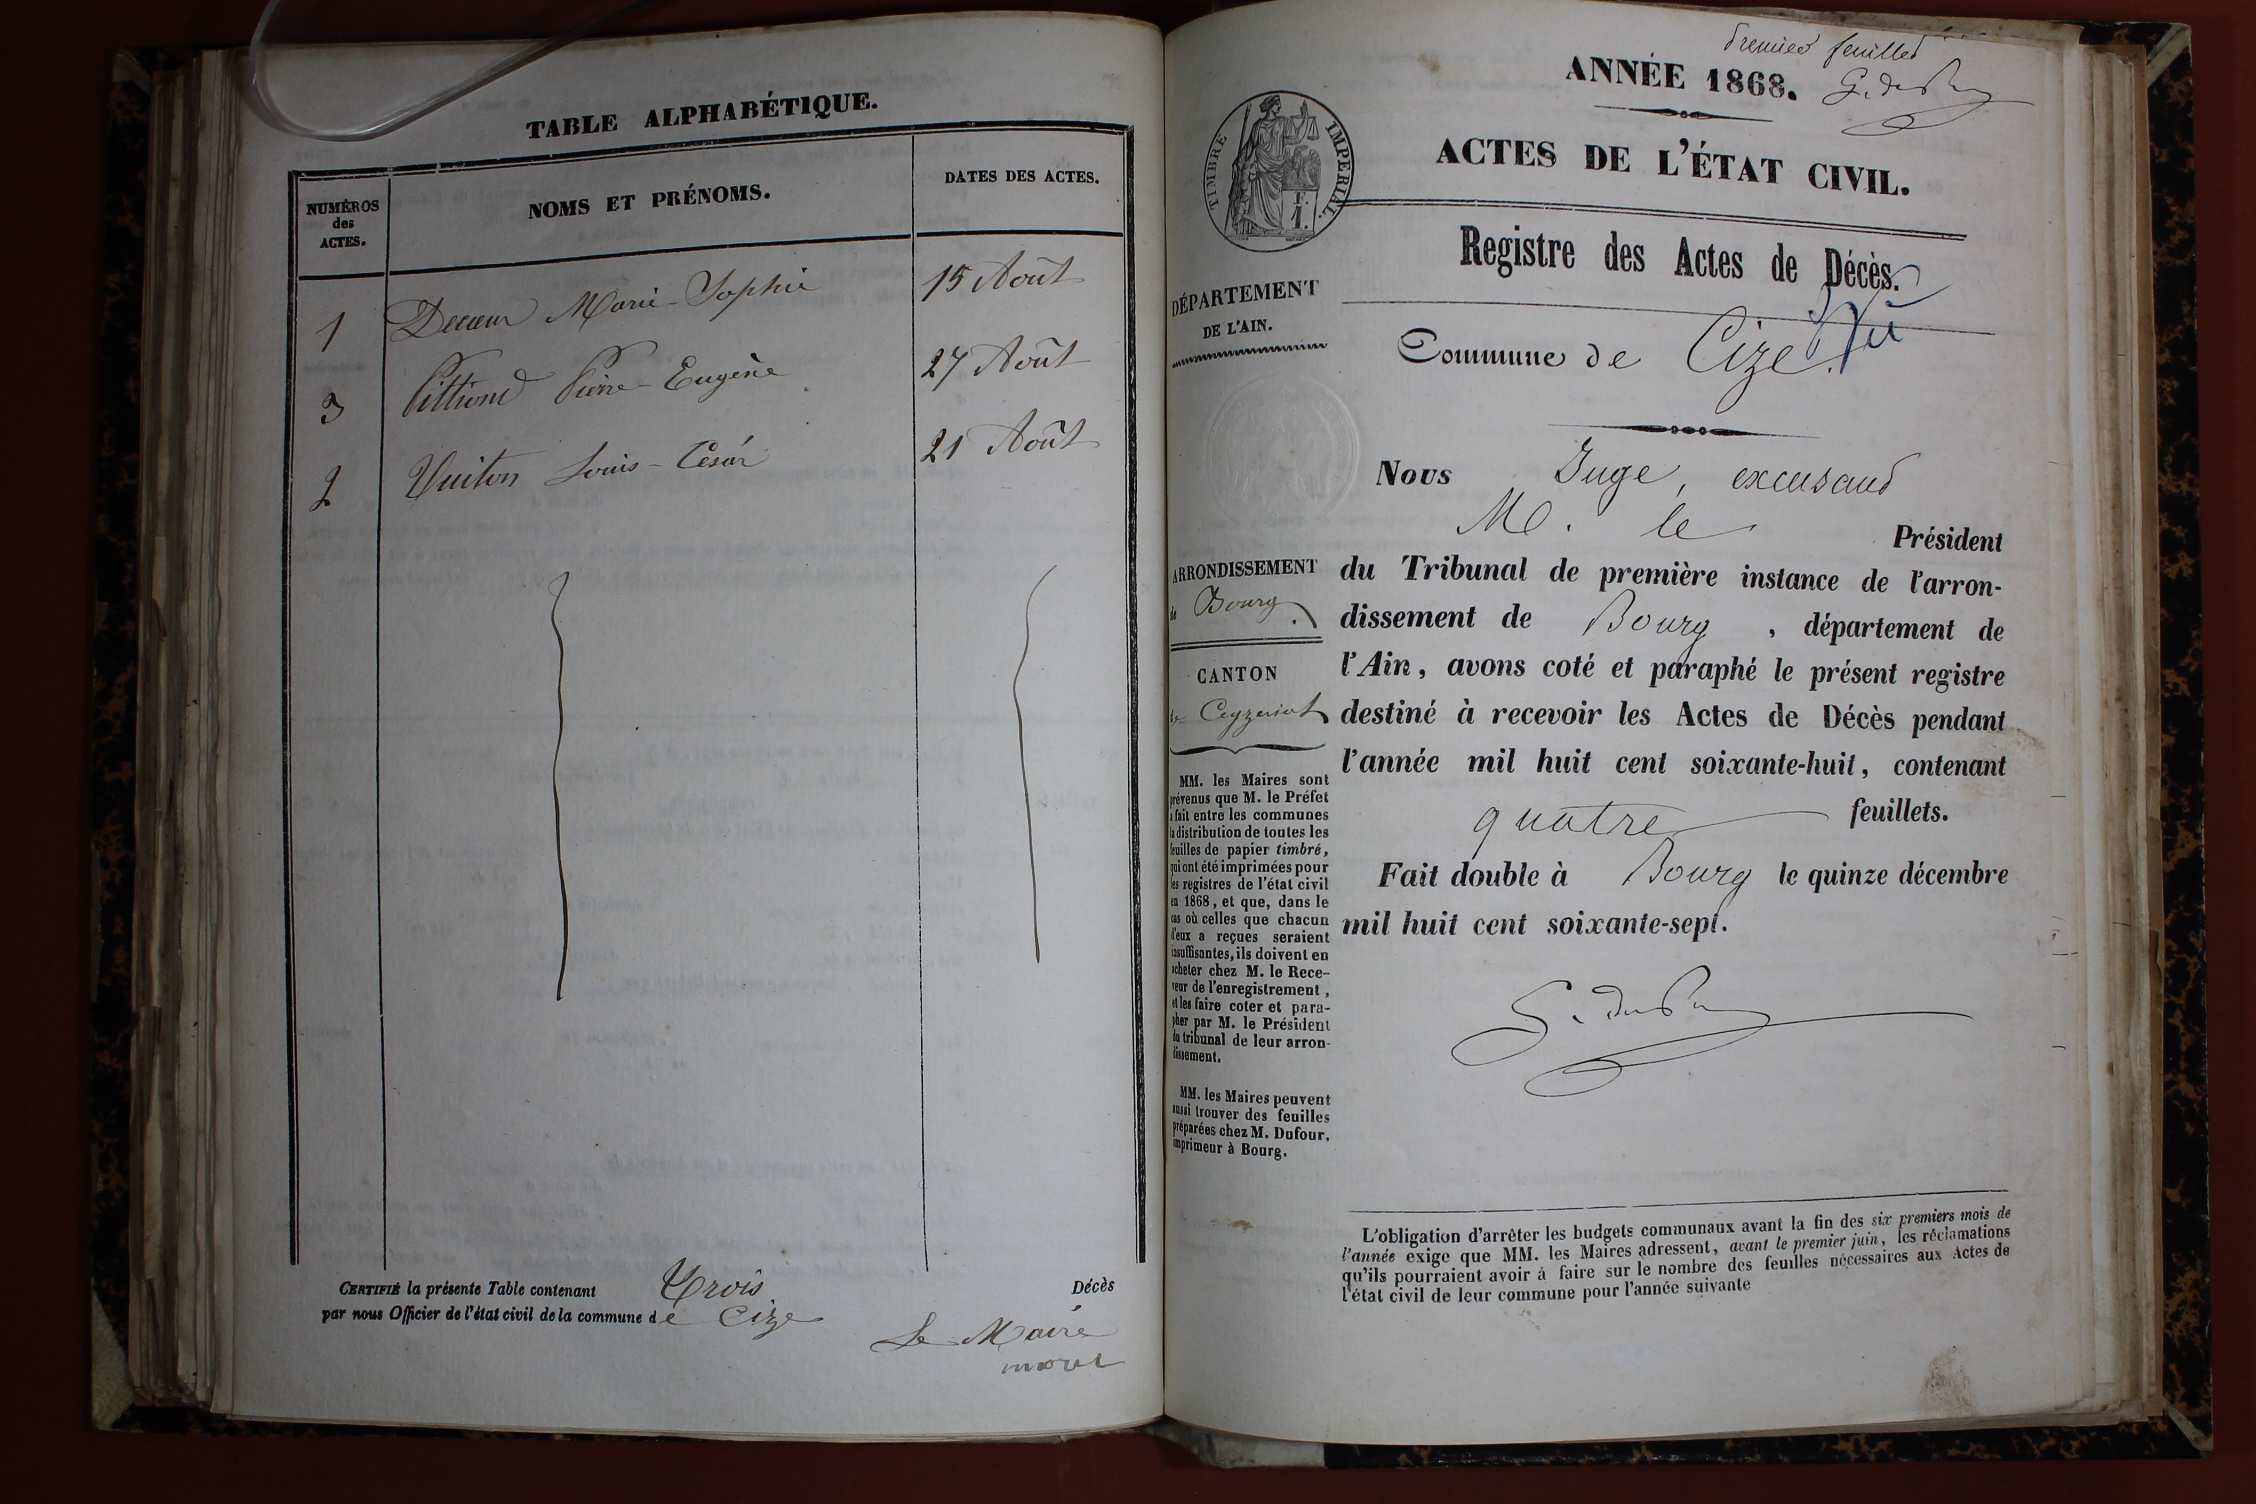 TABLE ALPHABÉTIQUE.
NUMÉROS
des
ACTES.
NOMS ET PRÉNOMS.
DATES DES ACTES.
1 Decœur Marie-Sophie 15 Août
3 Pittiond Pierre-Eugène 27 Août
2 Vuiton Louis-César 21 Août
CERTIFIÉ la présente Table contenant Trois Décès
par nous Officier de l'état civil de la commune de Cize
Le Maire
morel
premier feuillet
ANNÉE 1868.
ACTES DE L'ÉTAT CIVIL.
TIMBRE IMPERIAL.
F.
1.
Registre des Actes de Décès.
Vu
Commune de Cize.
DÉPARTEMENT
DE L'AIN.
ARRONDISSEMENT
de Bourg.
CANTON
de Ceyzeriat
MM. les Maires sont
prévenus que M. le Préfet
a fait entre les communes
la distribution de toutes les
feuilles de papier timbré,
qui ont été imprimées pour
les registres de l'état civil
en 1868, et que, dans le
cas où celles que chacun
d'eux a reçues seraient
insuffisantes, ils doivent en
acheter chez M. le Rece-
veur de l'enregistrement,
et les faire coter et para-
pher par M. le Président
du tribunal de leur arron-
dissement.
MM. les Maires peuvent
aussi trouver des feuilles
préparées chez M. Dufour,
imprimeur à Bourg.
Nous Juge, excusant
M. le Président
du Tribunal de première instance de l'arron-
dissement de Bourg, département de
l'Ain, avons coté et paraphé le présent registre
destiné à recevoir les Actes de Décès pendant
l'année mil huit cent soixante-huit, contenant
quatre feuillets.
Fait double à Bourg le quinze décembre
mil huit cent soixante-sept.
L'obligation d'arrêter les budgets communaux avant la fin des six premiers mois de
l'année exige que MM. les Maires adressent, avant le premier juin, les réclamations
qu'ils pourraient avoir à faire sur le nombre des feuilles nécessaires aux Actes de
l'état civil de leur commune pour l'année suivante